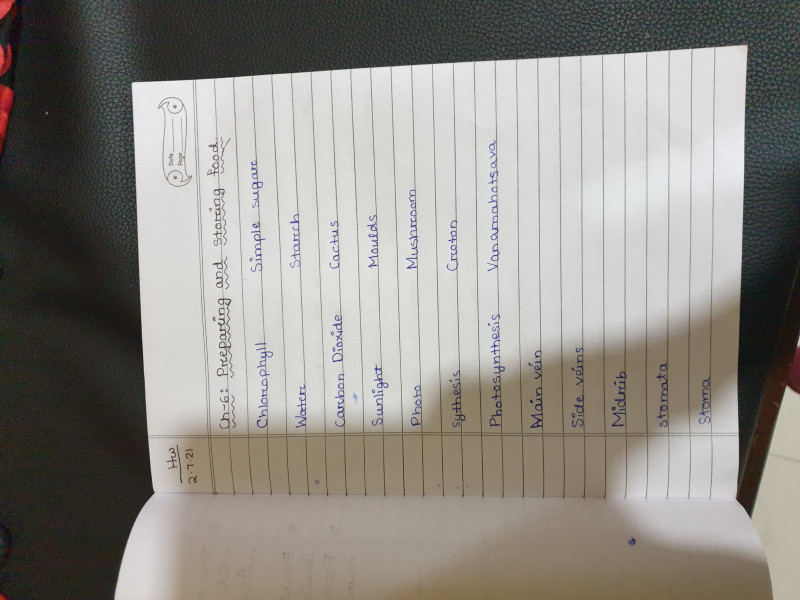 Date
Page
HW
2.7.21
Ch-6: Preparing and Storing food.
Chlorophyll Simple sugar
Water Starch
Carbon Dioxide Cactus
Sunlight Moulds
Photo Mushroom
sythesis Croton
Photosynthesis Vanamahotsava
Main vein
Side veins
Midrib
stomata
Stoma